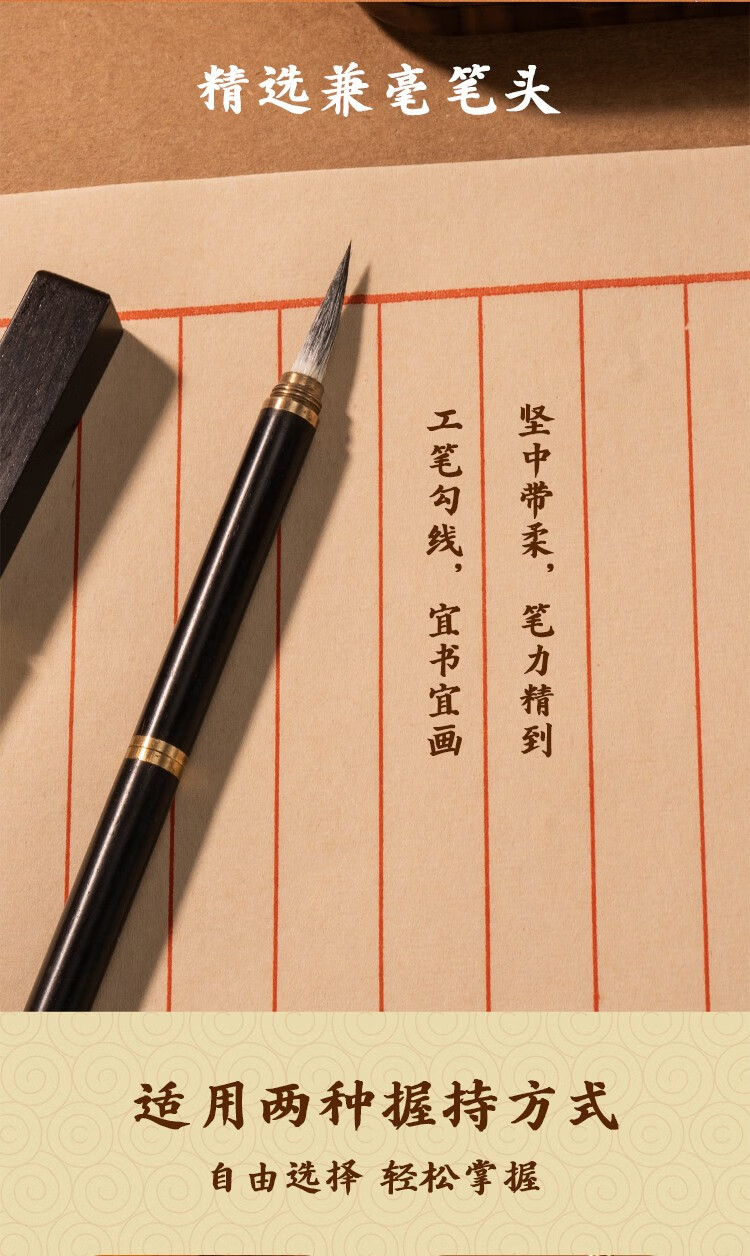 精选兼毫笔头
坚中带柔，笔力精到
工笔勾线，宜书宜画
适用两种握持方式
自由选择 轻松掌握